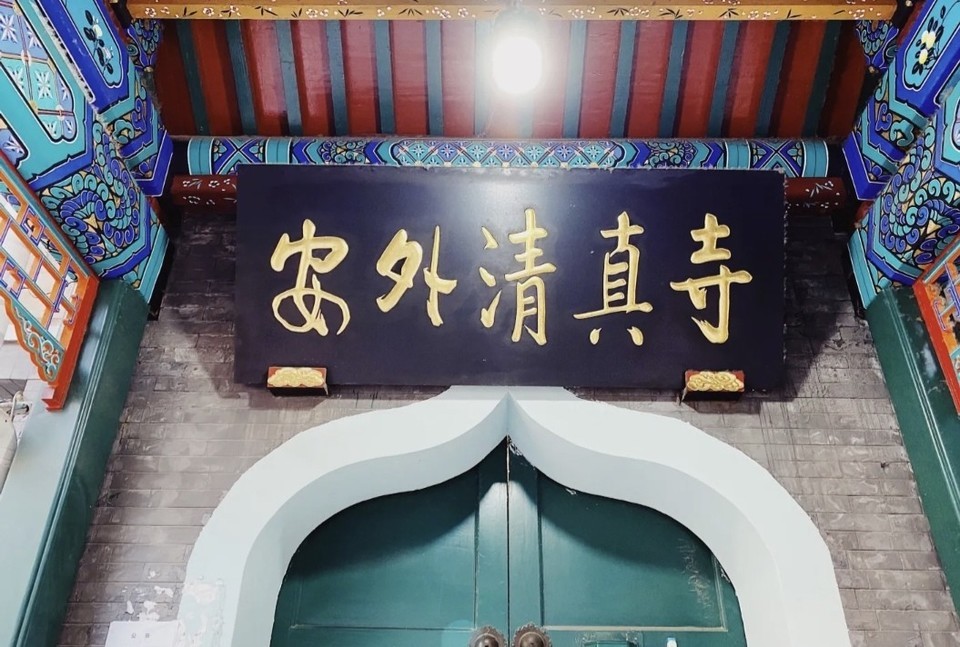 安外清真寺